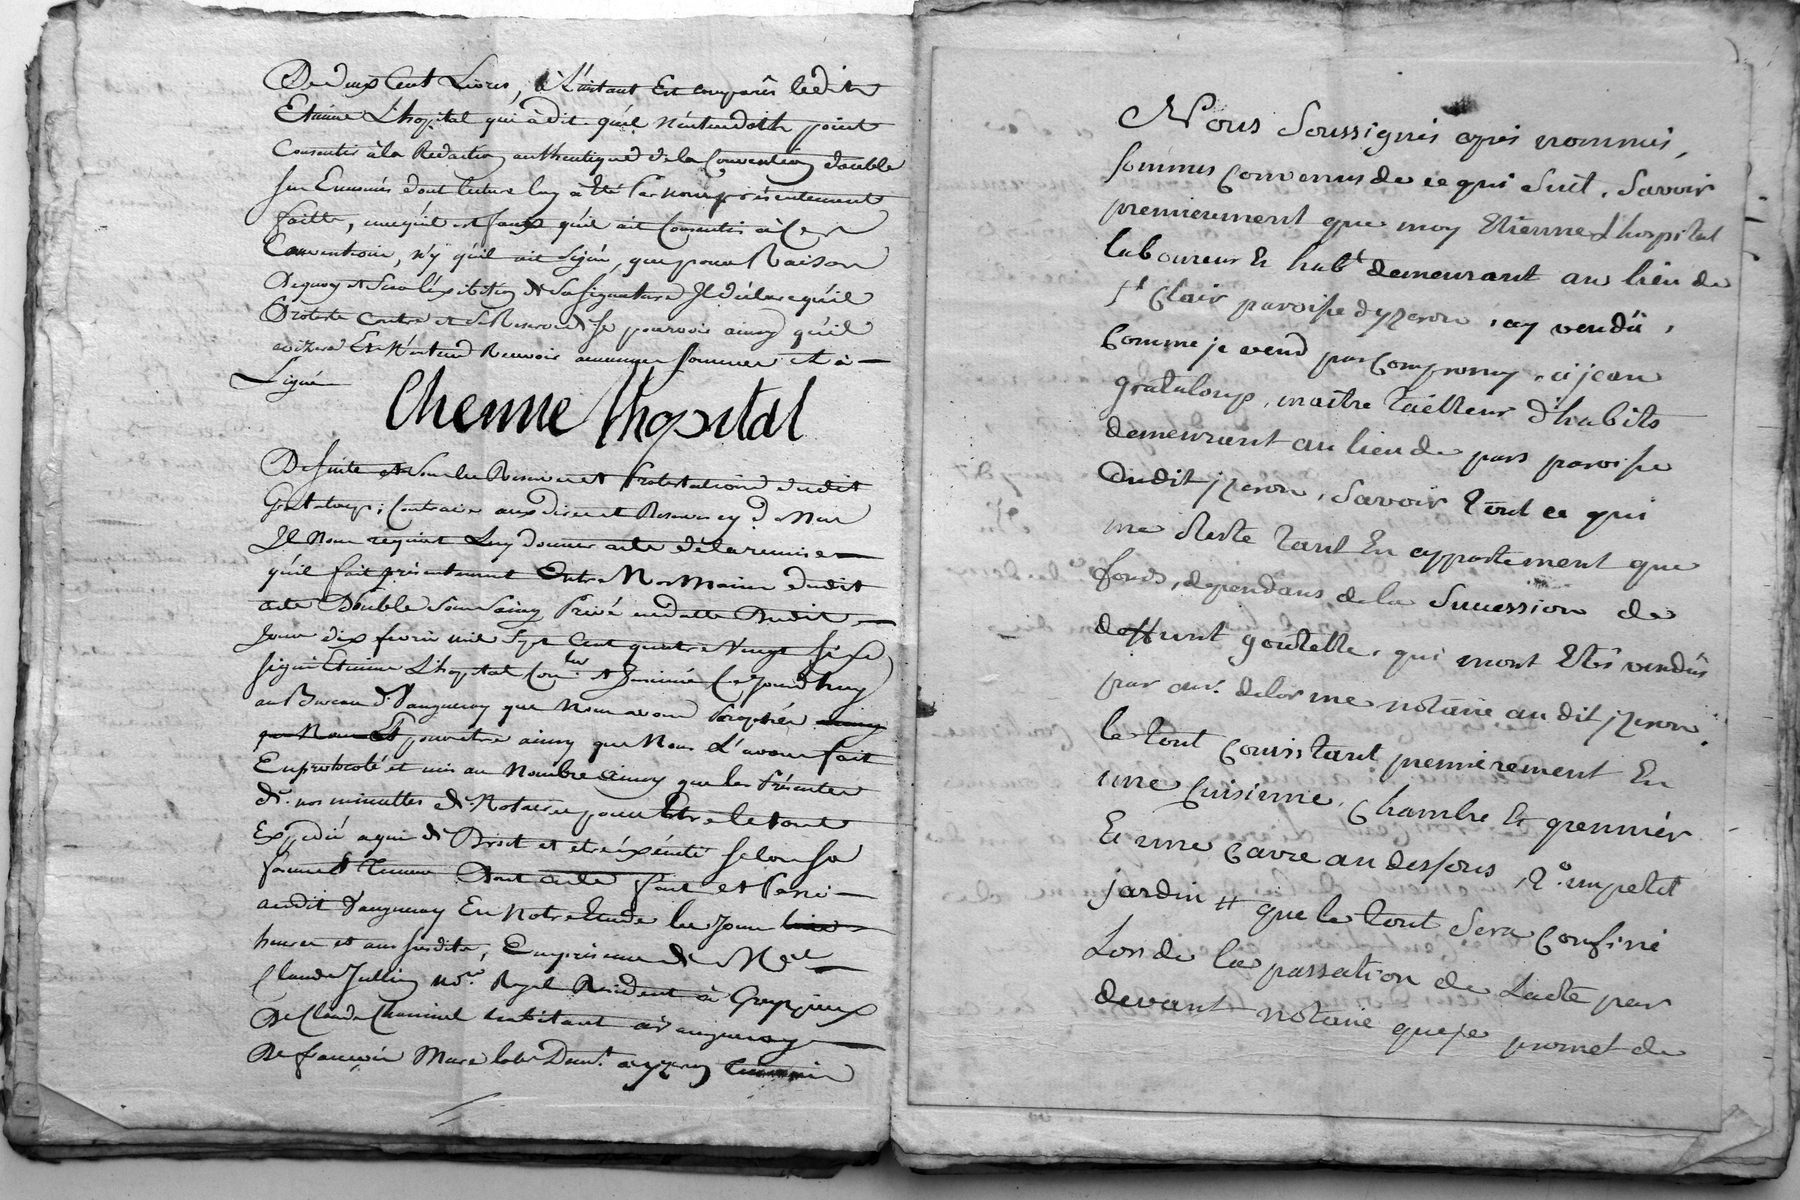 De deux Cent Livres, à L'instant Est comparû ledit
Etienne L'hopital qui à dit quil N'entendoit point
Consentir à la Redaction authentique de la Convention double
Sus Enoncés dont lecture luy à été Par nous présentement
faitte, unequil est faux qu'il ait Consentis à Ces
Conventions, n'y qu'il ait signé, que pour Raison
Dequoy et Sur l'éxibition de Sa signature Il déclare qu'il
Proteste contre et se Reserve de se pourvoir ainsy qu'il
avizera Et N'entend Recevoir aucunne somme et à
Signé
Etienne lhopital
De suite et Sous les Reserves et Protestations dudit
Grataloup, Contraire aux dires et Reserves cy d. Nous
Il Nous requiert Luy donner acte de la remise
qu'il fait présentement Entre Nos Mains dudit
acte Double Sous Seing Privé en datte Dudit
Jour dix fevrier mil Sept Cent quatre Vingt Six
signé Etienne L'hopital Con.eur et Insinué Cejourdhuy
au Bureau de Vaugneray que Nous avons Paraphée
pour être ainsy que Nous L'avons fait
Enprotocolé et mis au Nombre ainsy que les Présentes
de nos minuttes de Notaire pour Etre le tout
Expedié aqui de Droit et etre éxécuté selon sa
forme et Teneur Dont acte fait et Passé
audit Vaugneray En Notre Etude les Jour
heure et an susdits, En présence de Me
Claude Jullien No.re Royal Résident à Grezieux
De Claude Chaninel habitant à Vaugneray
De françois Mure lab. Dem.t a yzeron
Nous Soussignés apres nommés,
sommes Convenus de ce qui Suit, Savoir
premierement que moy Etienne L'hospital
laboureur Et hab.t demeurant au lieu de
s.t Clair paroisse dyzeron, ay vendû,
Comme je vend par Compromy, a jean
gratuloup, maitre Tailleur d'habits
demeurant au lieu de pars paroisse
dudit yzeron, Savoir tout ce qui
me Reste Tant En appartement que
fond, dependans de la Sucession de
deffunt goutelle, qui mont Etés vendûs
par au. delorme notaire audit yzeron,
le tout Consistant premierement En
une Cuisinne, Chambre Et grennier
Et une Cavve au dessous, 2.° un petit
jardin # que le tout Sera Confiné
Lors de la passation de Lacte par
devant notaire que je promet de